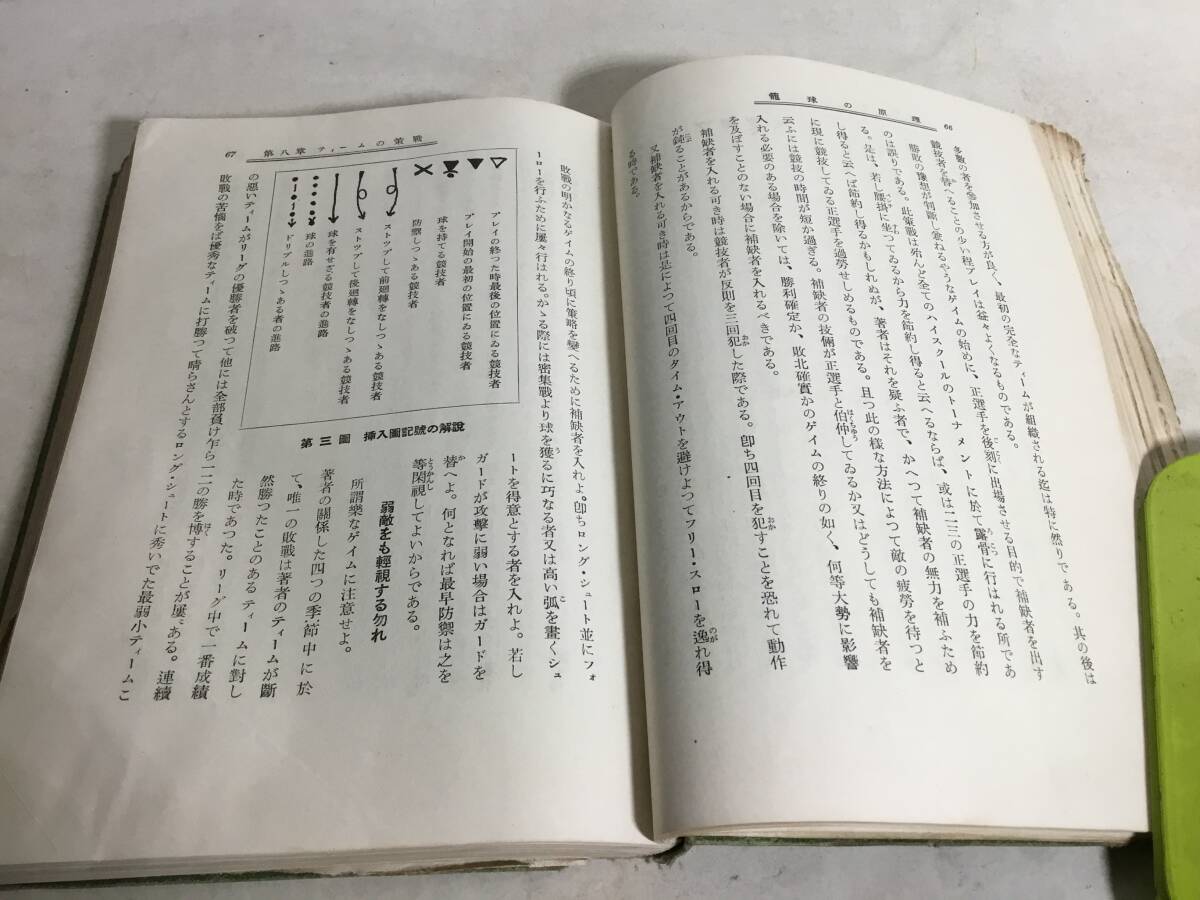 籠球の原理
66
多數の者を參加させる方が良く、最初の完全なティームが組織される迄は特に然りである。其の後は
競技者を替へることの少い程プレイは益々よくなるものである。
勝敗の豫想が判斷し兼ねるやうなゲイムの始めに、正選手を後刻に出場させる目的で補缺者を出す
のは誤りである。此策戰は殆んど全てのハイスクールのトーナメントに於て露骨に行はれる所であ
る。是は、若し腰掛に坐つてゐるから力を節約し得ると云へるならば、或は二三の正選手の力を節約
し得ると云へば節約し得るかもしれぬが、著者はそれを疑ふ者で、かへつて補缺者の無力を補ふため
に現に競技してゐる正選手を過勞せしめるものである。且つ此の樣な方法によつて敵の疲勞を待つと
云ふには競技の時間が短か過ぎる。補缺者の技倆が正選手と伯仲してゐるか又はどうしても補缺者を
入れる必要のある場合を除いては、勝利確定か、敗北確實かのゲイムの終りの如く、何等大勢に影響
を及ぼすことのない場合に補缺者を入れるべきである。
補缺者を入れる可き時は競技者が反則を三回犯した際である。卽ち四回目を犯すことを恐れて動作
が鈍ることがあるからである。
又補缺者を入れる可き時は是によつて四回目のタイム・アウトを避けよつてフリー・スローを逸れ得
る時である。
第八章 ティームの策戰
67
プレイの終つた時最後の位置にゐる競技者
プレイ開始の最初の位置にゐる競技者
球を持てる競技者
防禦しつゝある競技者
ストツプして前廻轉をなしつゝある競技者
ストツプして後廻轉をなしつゝある競技者
球を有せざる競技者の進路
球の進路
ドリブルしつゝある者の進路
第三圖 挿入圖記號の解說
敗戰の明かなるゲイムの終り頃に策略を變へるために補缺者を入れよ。卽ちロング・シュート並にフォ
ーローを行ふために屢々行はれる。かゝる際には密集戰より球を獲るに巧なる者又は高い弧を畫くシュ
ートを得意とする者を入れよ。若し
ガードが攻擊に弱い場合はガードを
替へよ。何となれば最早防禦は之を
等閑視してよいからである。
弱敵をも輕視する勿れ
所謂樂なゲイムに注意せよ。
著者の關係した四つの季節中に於
て、唯一の敗戰は著者のティームが斷
然勝つたことのあるティームに對し
た時であつた。リーグ中で一番成績
の惡いティームがリーグの優勝者を破つて他には全部負け乍ら一二の勝を博することが屢〻ある。連續
敗戰の苦惱をば優秀なティームに打勝つて晴らさんとするロング・シュートに秀いでた最弱小ティームこ